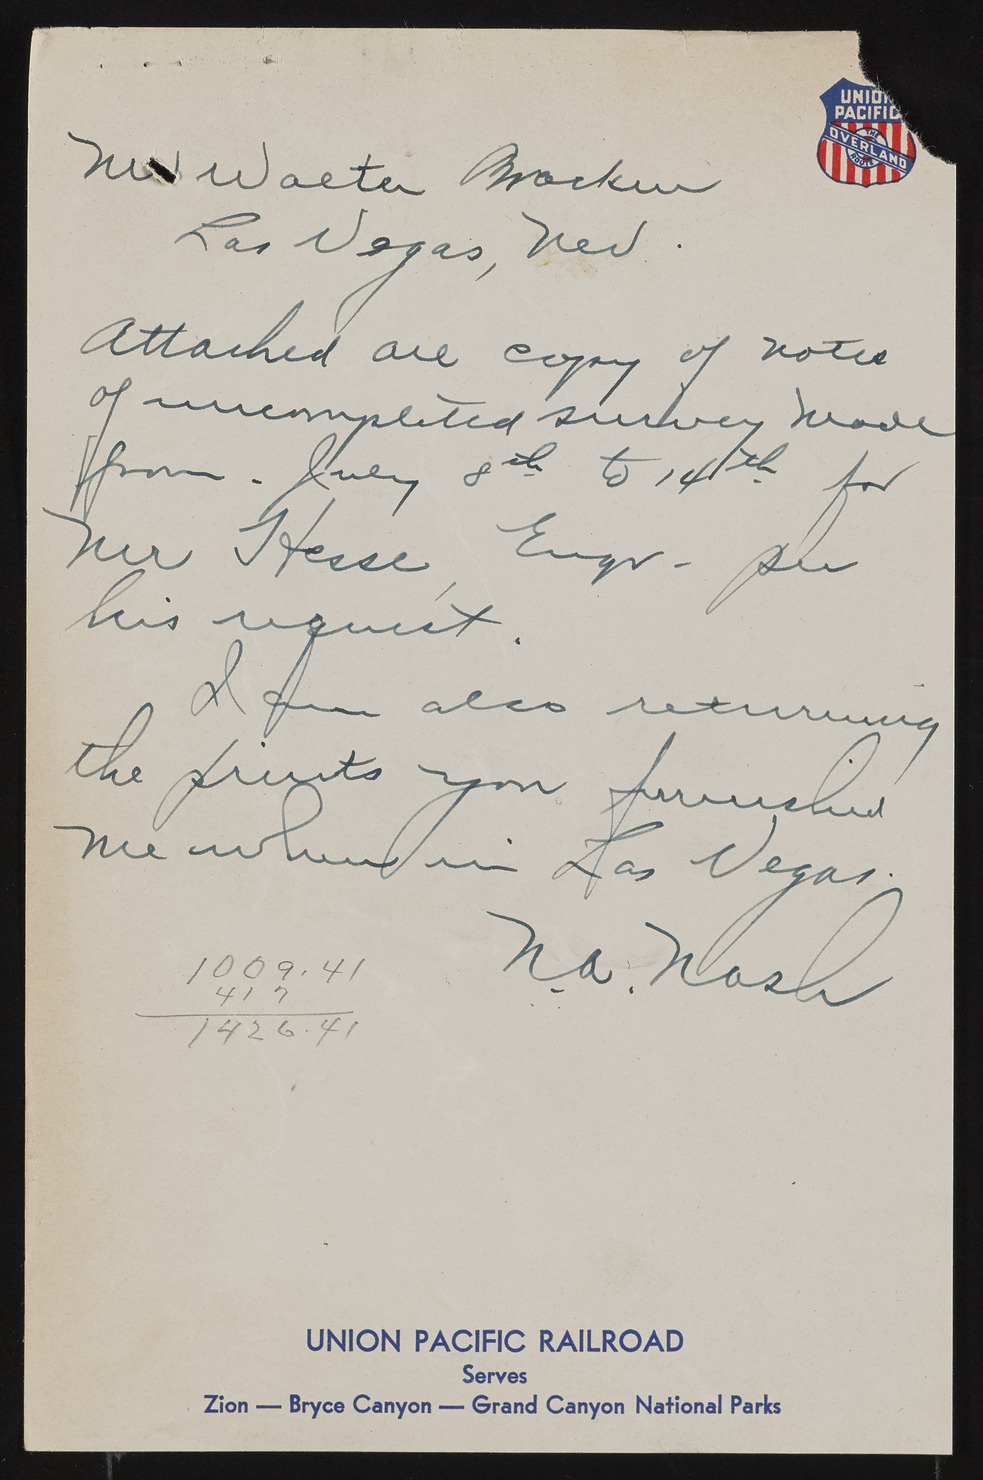 UNION
PACIFIC
THE
OVERLAND
ROUTE
Mr Walter Bracken
Las Vegas, Nev.
Attached are copy of notes
of uncompleted survey made
from. July 8th to 14th for
Mr Hesse, Engr - per
his request.
I am also returning
the prints you furnished
me when in Las Vegas.
N.A. Nash
1009.41
417
1426.41
UNION PACIFIC RAILROAD
Serves
Zion — Bryce Canyon — Grand Canyon National Parks